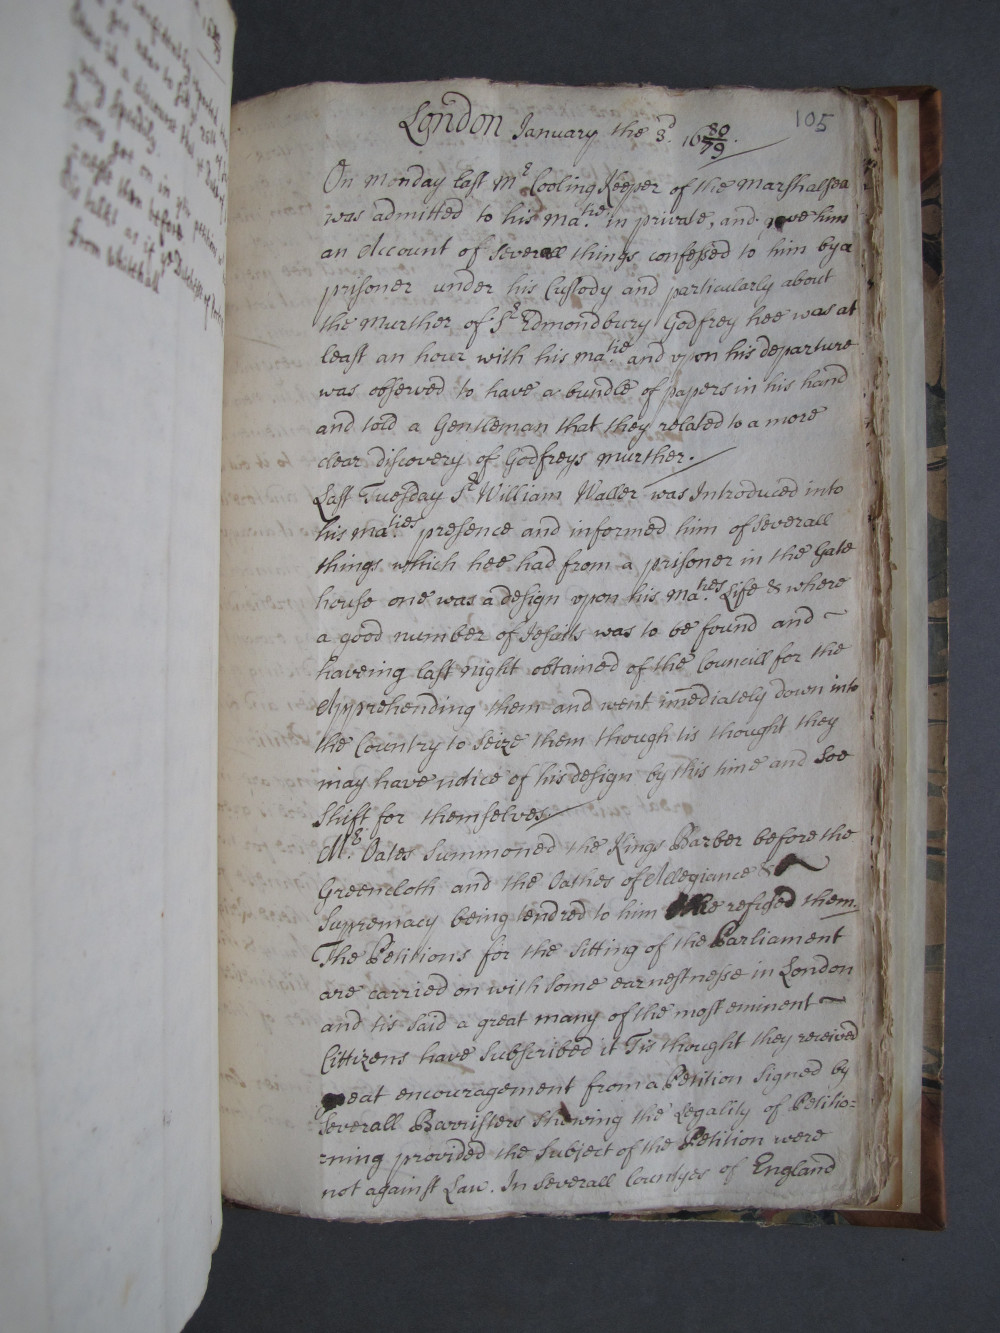 105
London January the 3d. 1680/79.
On Monday last Mr Cooling Keeper of the Marshalsea
was admitted to his Matie in private, and gave him
an Account of severall things confessed to him by a
prisoner under his Custody and particularly about
the Murther of Sr Edmondbury Godfrey hee was at
least an hour with his Matie and vpon his departure
was observed to have a bundle of papers in his hand
and told a Gentleman that they related to a more
clear discovery of Godfreys murther.
Last Tuesday Sr William Waller was Introduced into
his Maties presence and informed him of severall
things which hee had from a prisoner in the Gate
house one was a design vpon his Maties Life & where
a good number of Jesuits was to be found and
haveing last night obtained of the Councill for the
Apprehending them and went imediately down into
the Country to seize them though tis thought they
may have notice of his design by this time and soe
shift for themselves
Mr. Oates summoned the Kings Barber before the
Greencloth and the Oathes of Allegiance &
Supremacy being tendred to him hee refused them.
The Petitions for the sitting of the Parliament
are carried on with some earnestnesse in London
and tis said a great many of the most eminent
Cittizens have subscribed it Tis thought they received
great encouragement from a Petition signed by
severall Barristers shewing the Legality of Petitio=
rning provided the subject of the Petition were
not against Law. In severall Countyes of England